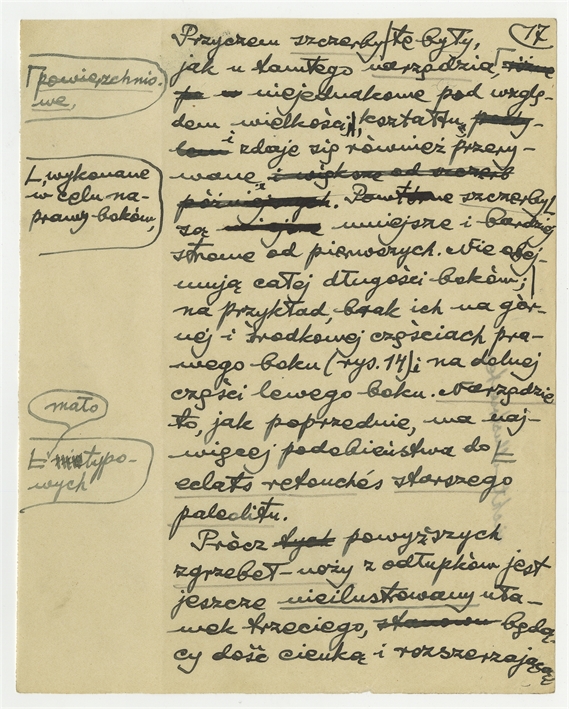 17
Przyczem szczerby te były,
jak u tamtego narzędzia,
niejednakowe pod wzglę-
dem wielkości, kształtu,
i zdaje się również przery-
wane i większe od szczerb
późniejszych. Powtórne szczerby
są mniejsze i bardziej
strome od pierwszych. Nie obej-
mują całej długości boków;
na przykład, brak ich na gór-
nej i środkowej częściach pra-
wego boku (rys. 14) i na dolnej
części lewego boku. Narzędzie
to, jak poprzednie, ma naj-
więcej podobieństwa do
eclats retouchés starszego
paleolitu.
Prócz tych powyższych
zgrzebeł-noży z odłupków jest
jeszcze nieilustrowany uła-
mek trzeciego, będą-
cy dość cienką i rozszerzającą
powierzchnio-
we,
wykonane
w celu na-
prawy boków,
mało
typo-
wych